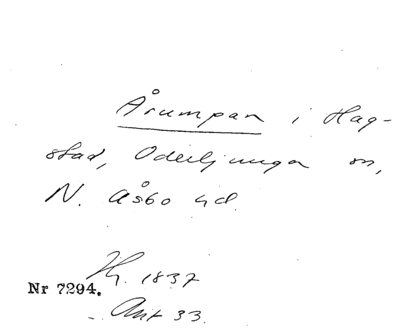 Årumpan i Hag-
stad, Oderljunga sn,
N. Åsbo hd.
Hg. 1837
Nr 7294.
Ant 33.